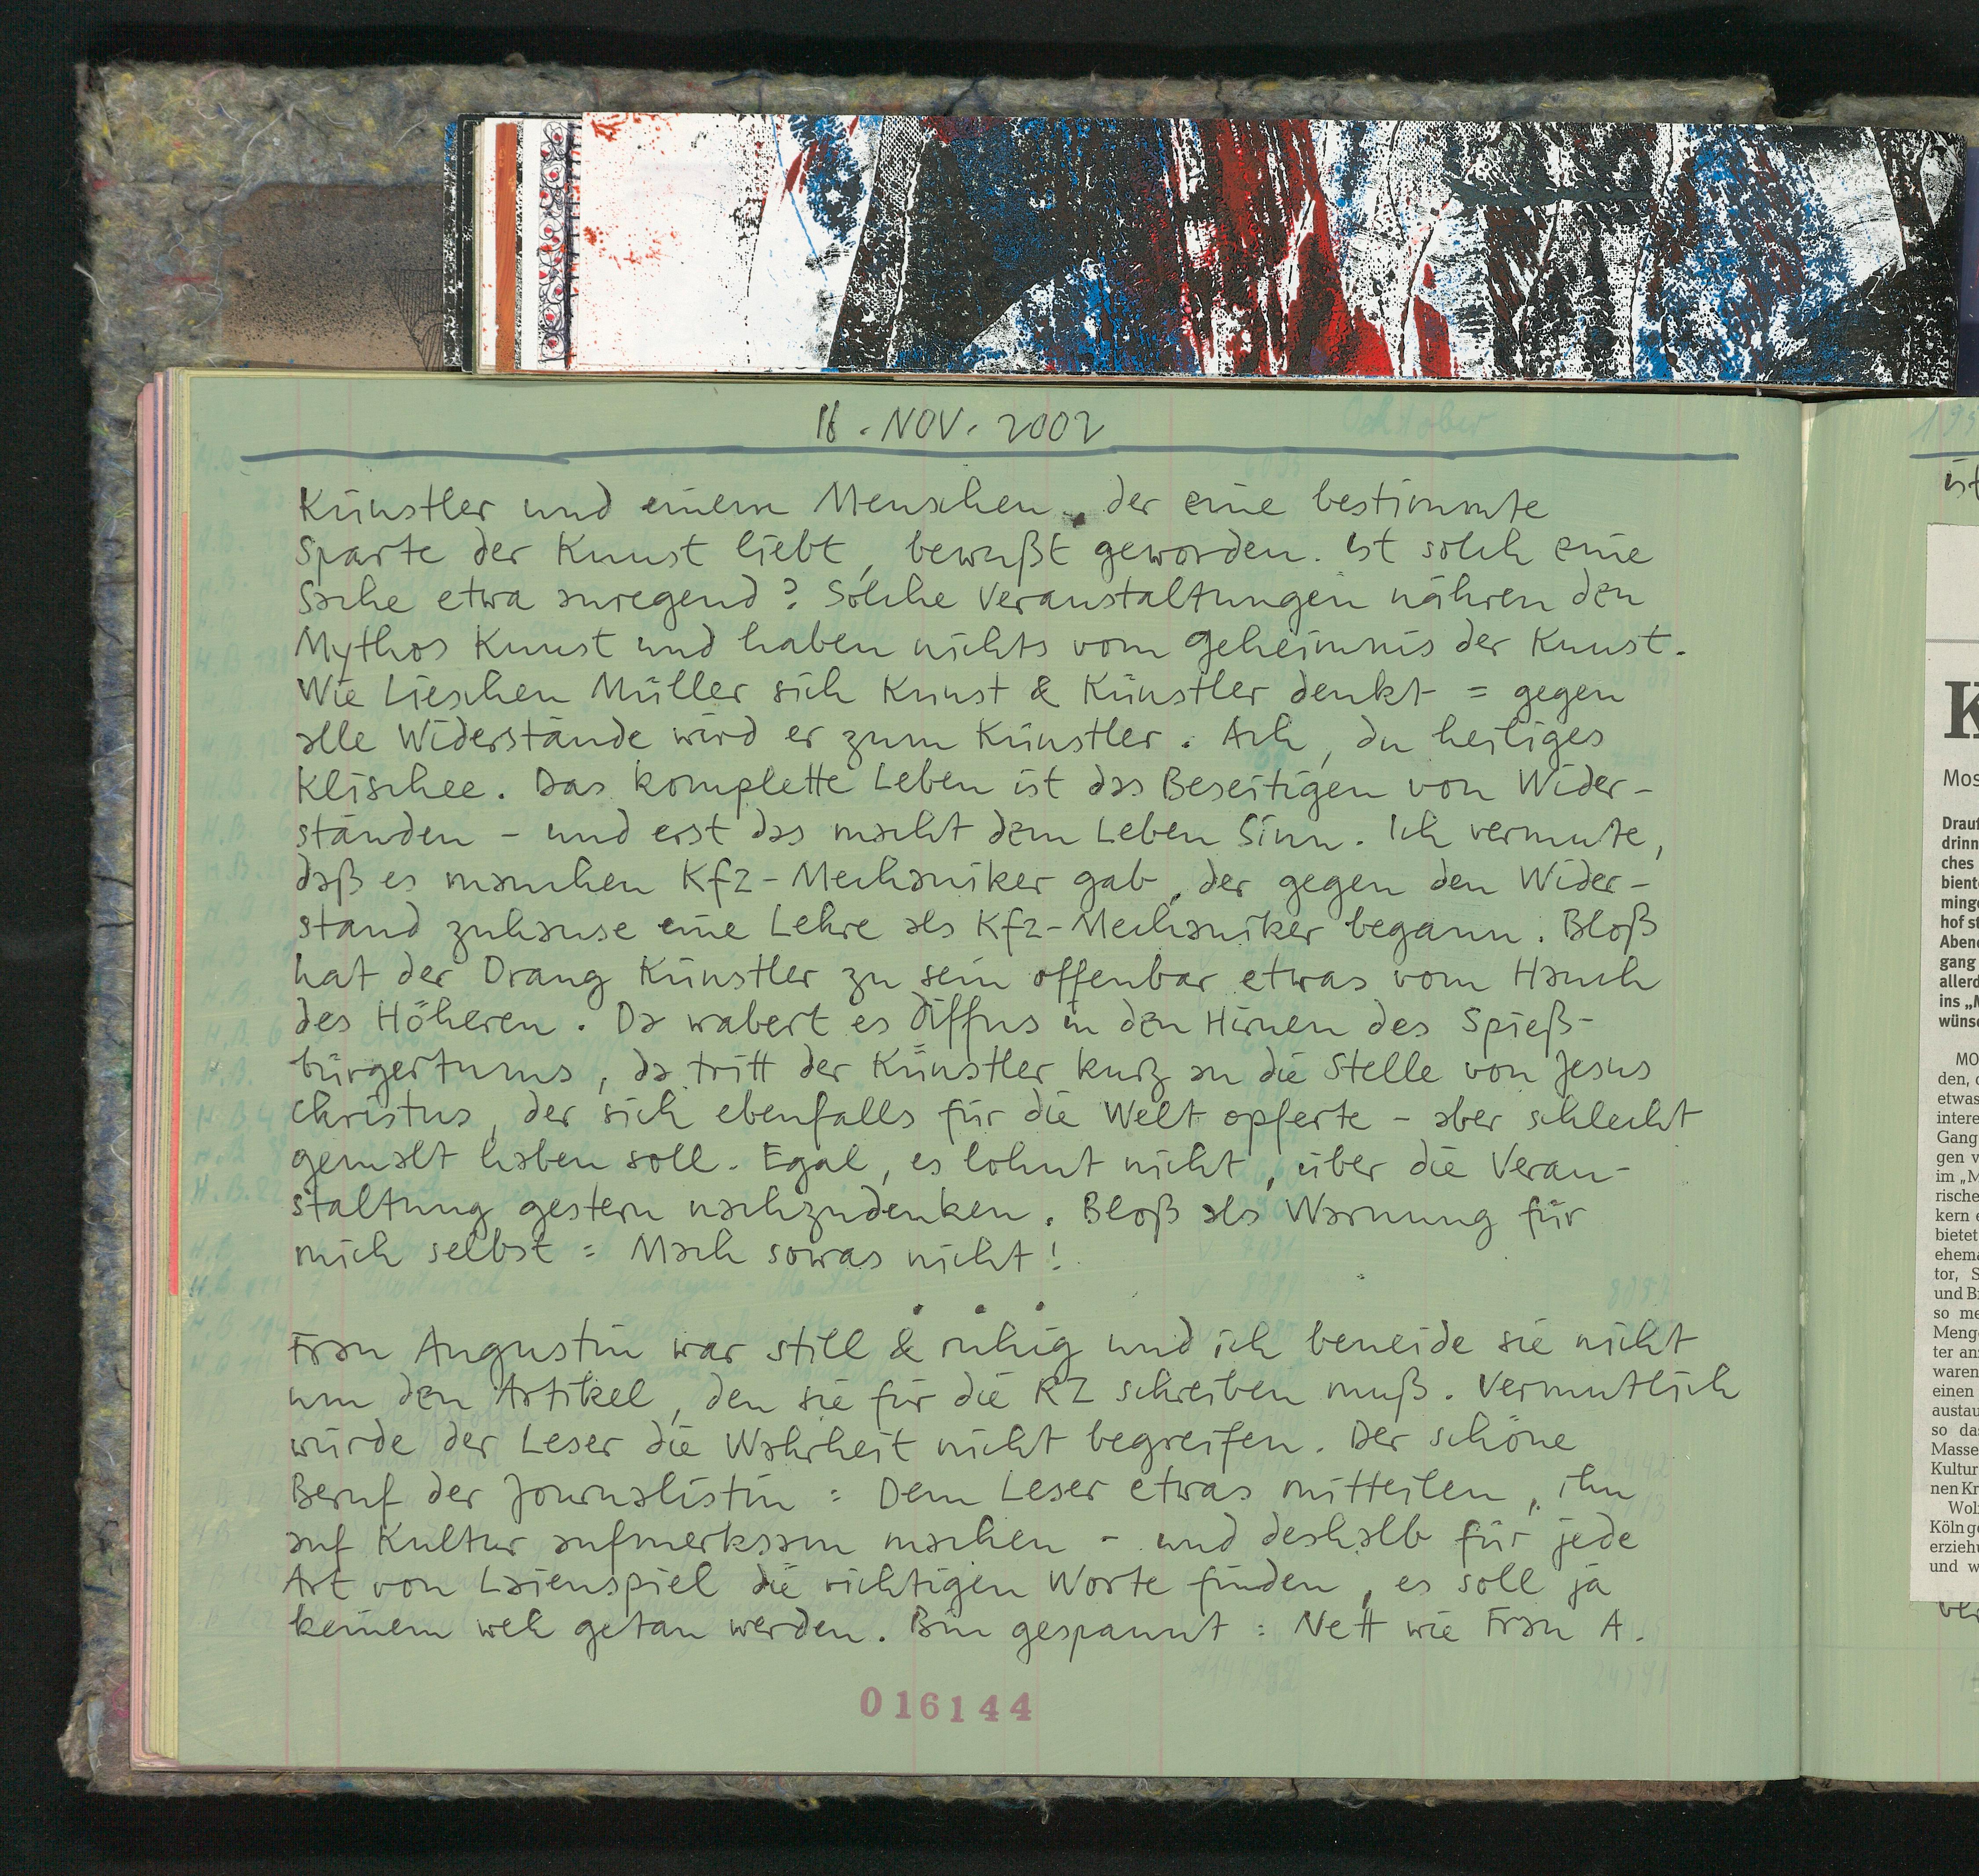 16. NOV. 2002
Künstler und einem Menschen, der eine bestimmte
Sparte der Kunst liebt, bewußt geworden. Ist solch eine
Sache etwa anregend? Solche Veranstaltungen nähren den
Mythos Kunst und haben nichts vom Geheimnis der Kunst.
Wie Lieschen Müller sich Kunst & Künstler denkt = gegen
alle Widerstände wird er zum Künstler. Ach, du heiliges
Klischee. Das komplette Leben ist das Beseitigen von Wider-
ständen - und erst das macht dem Leben Sinn. Ich vermute,
daß es manchen Kfz-Mechaniker gab, der gegen den Wider-
stand zuhause eine Lehre als Kfz-Mechaniker begann. Bloß
hat der Drang Künstler zu sein offenbar etwas vom Hauch
des Höheren. Da wabert es diffus in den Hirnen des Spieß-
bürgertums, da tritt der Künstler kurz an die Stelle von Jesus
Christus, der sich ebenfalls für die Welt opferte - aber schlecht
gemalt haben soll. Egal, es lohnt nicht, über die Veran-
staltung gestern nachzudenken. Bloß als Warnung für
mich selbst: Mach sowas nicht!
. . .
Frau Augustin war still & ruhig und ich beneide sie nicht
um den Artikel, den sie für die RZ schreiben muß. Vermutlich
würde der Leser die Wahrheit nicht begreifen. Der schöne
Beruf der Journalistin: Dem Leser etwas mitteilen, ihn
auf Kultur aufmerksam machen - und deshalb für jede
Art von Laienspiel die richtigen Worte finden, es soll ja
keinem weh getan werden. Bin gespannt: Nett wie Frau A.
016144
Oktober
ist
K
Mos
Drauß
drinn
ches
biente
minge
hof st
Abend
gang
allerd
ins „M
wünsc
MO
den, d
etwas
intere
Gang
gen v
im „M
rische
kern e
bietet
ehema
tor, S
und Bi
so me
Meng
ter an
waren
einen
austau
so das
Masse
Kultur
nen Kr
Wol
Köln ge
erzieh
und w